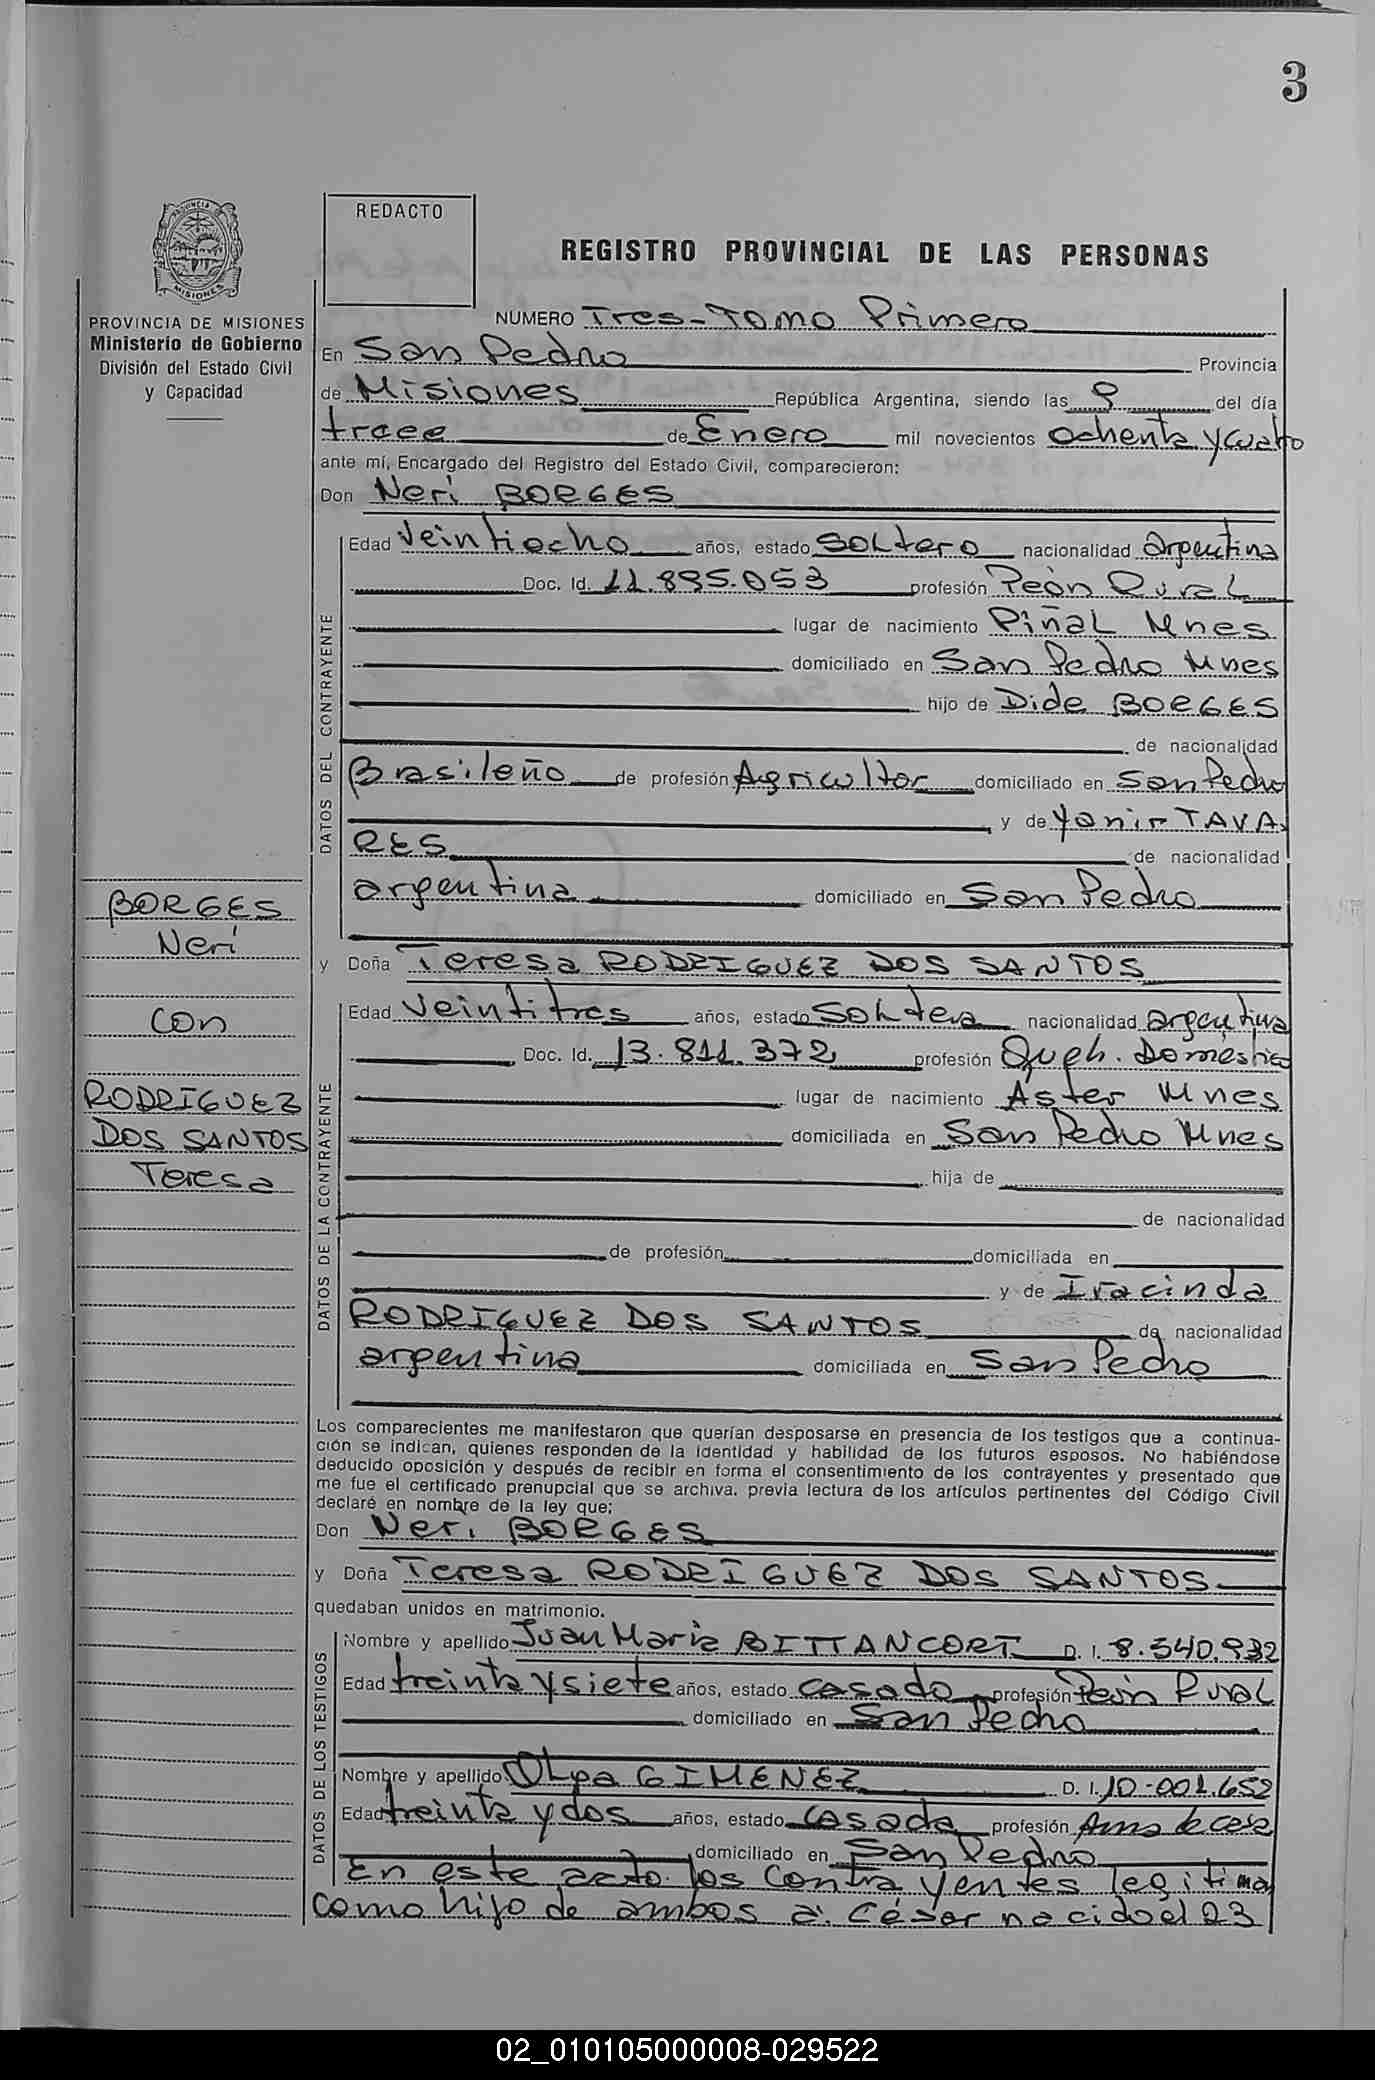 3
REDACTO
REGISTRO PROVINCIAL DE LAS PERSONAS
PROVINCIA DE MISIONES
Ministerio de Gobierno
División del Estado Civil
y Capacidad
NUMERO Tres-TOMO Primero
En San Pedro Provincia
de Misiones República Argentina, siendo las 9 del día
trece de Enero mil novecientos ochenta y cuatro
ante mí, Encargado del Registro del Estado Civil, comparecieron:
Don Neri BORGES
DATOS DEL CONTRAYENTE
Edad Veintiocho años, estado Soltero nacionalidad argentina
Doc. Id. 11.895.053 profesión Peón Rural
lugar de nacimiento Piñal Mnes
domiciliado en San Pedro Mnes
hijo de Dide BORGES
de nacionalidad
Brasileño de profesión Agricultor domiciliado en San Pedro
y de Yanir TAVA
RES de nacionalidad
argentina domiciliado en San Pedro
BORGES
Neri
con
RODRIGUEZ
DOS SANTOS
Teresa
y Doña Teresa RODRIGUEZ DOS SANTOS
DATOS DE LA CONTRAYENTE
Edad Veintitres años, estado Soltera nacionalidad argentina
Doc. Id. 13.811.372 profesión Queh. Doméstico
lugar de nacimiento Aster Mnes
domiciliada en San Pedro Mnes
hija de
de nacionalidad
de profesión domiciliada en
y de Iracinda
RODRIGUEZ DOS SANTOS de nacionalidad
argentina domiciliada en San Pedro
Los comparecientes me manifestaron que querían desposarse en presencia de los testigos que a continua-
ción se indican, quienes responden de la identidad y habilidad de los futuros esposos. No habiéndose
deducido oposición y después de recibir en forma el consentimiento de los contrayentes y presentado que
me fue el certificado prenupcial que se archiva. previa lectura de los artículos pertinentes del Código Civil
declaré en nombre de la ley que:
Don Neri BORGES
y Doña Teresa RODRIGUEZ DOS SANTOS
quedaban unidos en matrimonio.
DATOS DE LOS TESTIGOS
Nombre y apellido Juan Maria BITTANCORT D. I. 8.540.932
Edad treinta y siete años, estado casado profesión Peón Rural
domiciliado en San Pedro
Nombre y apellido Olga GIMENEZ D. I. 10.001.652
Edad treinta y dos años, estado casada profesión Ama de casa
domiciliado en San Pedro
En este acto los Contrayentes legitiman
como hijo de ambos a: César nacido el 23
02_010105000008-029522